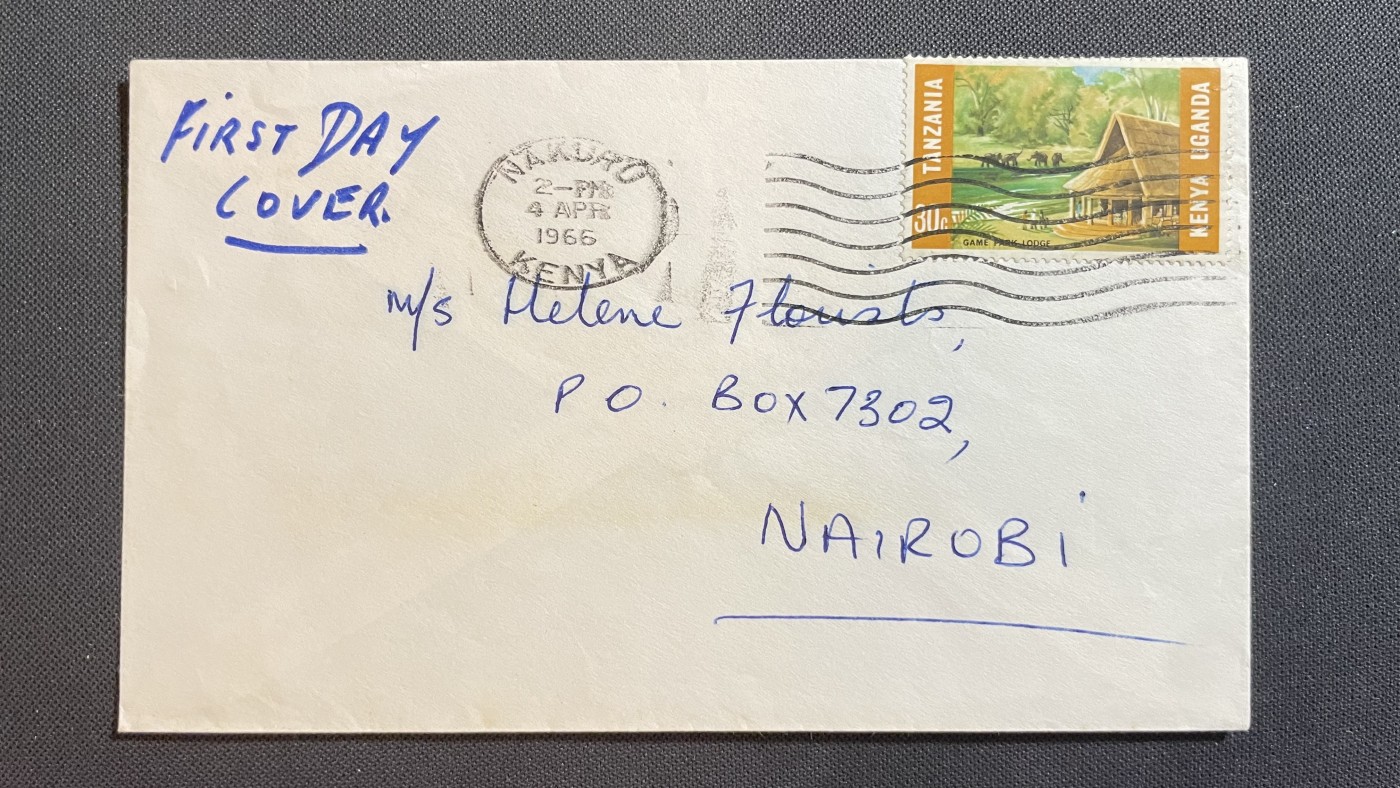 FIRST DAY
COVER.
NAKURU
2-PM
4 APR
1966
KENYA
TANZANIA
30c
GAME PARK LODGE
KENYA UGANDA
M/s Helene Florists,
P O. BOX 7302,
NAIROBI